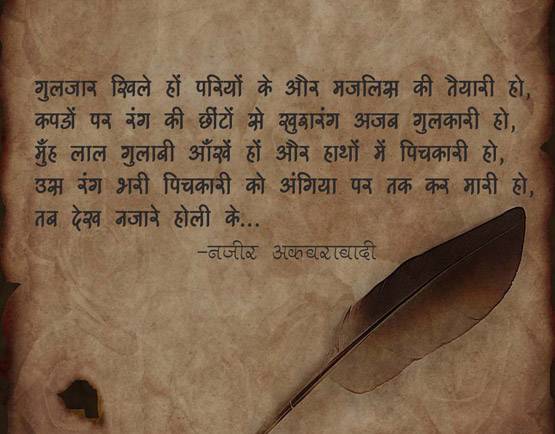 गुलजार खिले हों परियों के और मजलिस की तैयारी हो,
कपडों पर रंग की छींटों से खुशरंग अजब गुलकारी हो,
मुँह लाल गुलाबी आँखें हों और हाथों में पिचकारी हो,
उस रंग भरी पिचकारी को अंगिया पर तक कर मारी हो,
तब देख नजारे होली के...
-नजीर अकबराबादी